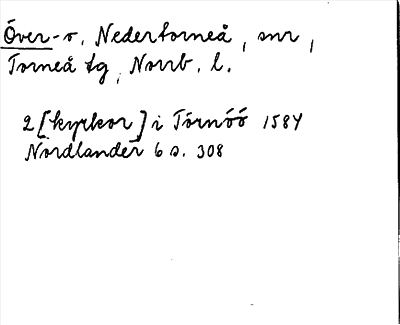 Över- o. Nedertorneå, snr,
Torneå tg, Norrb. l.
2 [kyrkor] i Törnöö 1584
Nordlander 6 s. 308